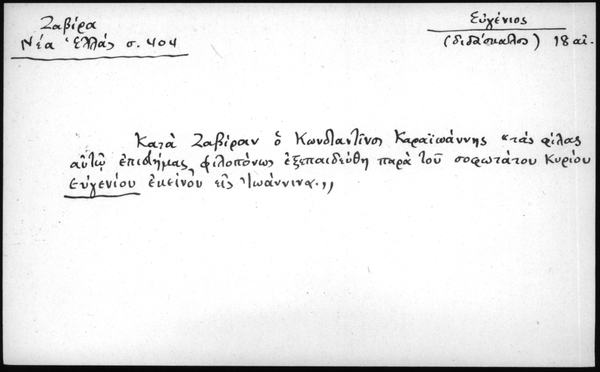 Ζαβίρα
Νέα Ἑλλάς σ. 404
Εὐγένιος
(διδάσκαλος) 18 αἰ.
Κατὰ Ζαβίραν ὁ Κωνσταντῖνος Καραϊωάννης "τὰς φίλας
αὐτῷ ἐπιστήμας φιλοπόνως ἐξεπαιδεύθη παρὰ τοῦ σοφωτάτου Κυρίου
Εὐγενίου ἐκείνου εἰς Ἰωάννινα.,,